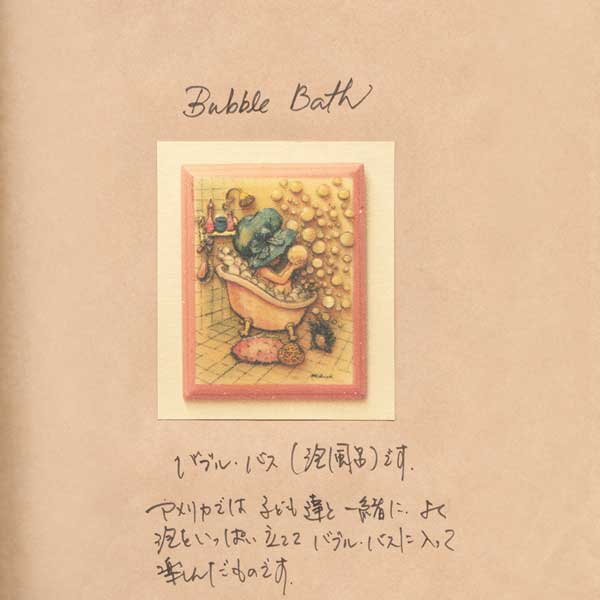 Bubble Bath
バブル・バス(泡風呂)です.
アメリカでは 子ども達と 一緒に. よく
泡をいっぱい 立てて バブル・バスに入って
楽しんだものです.